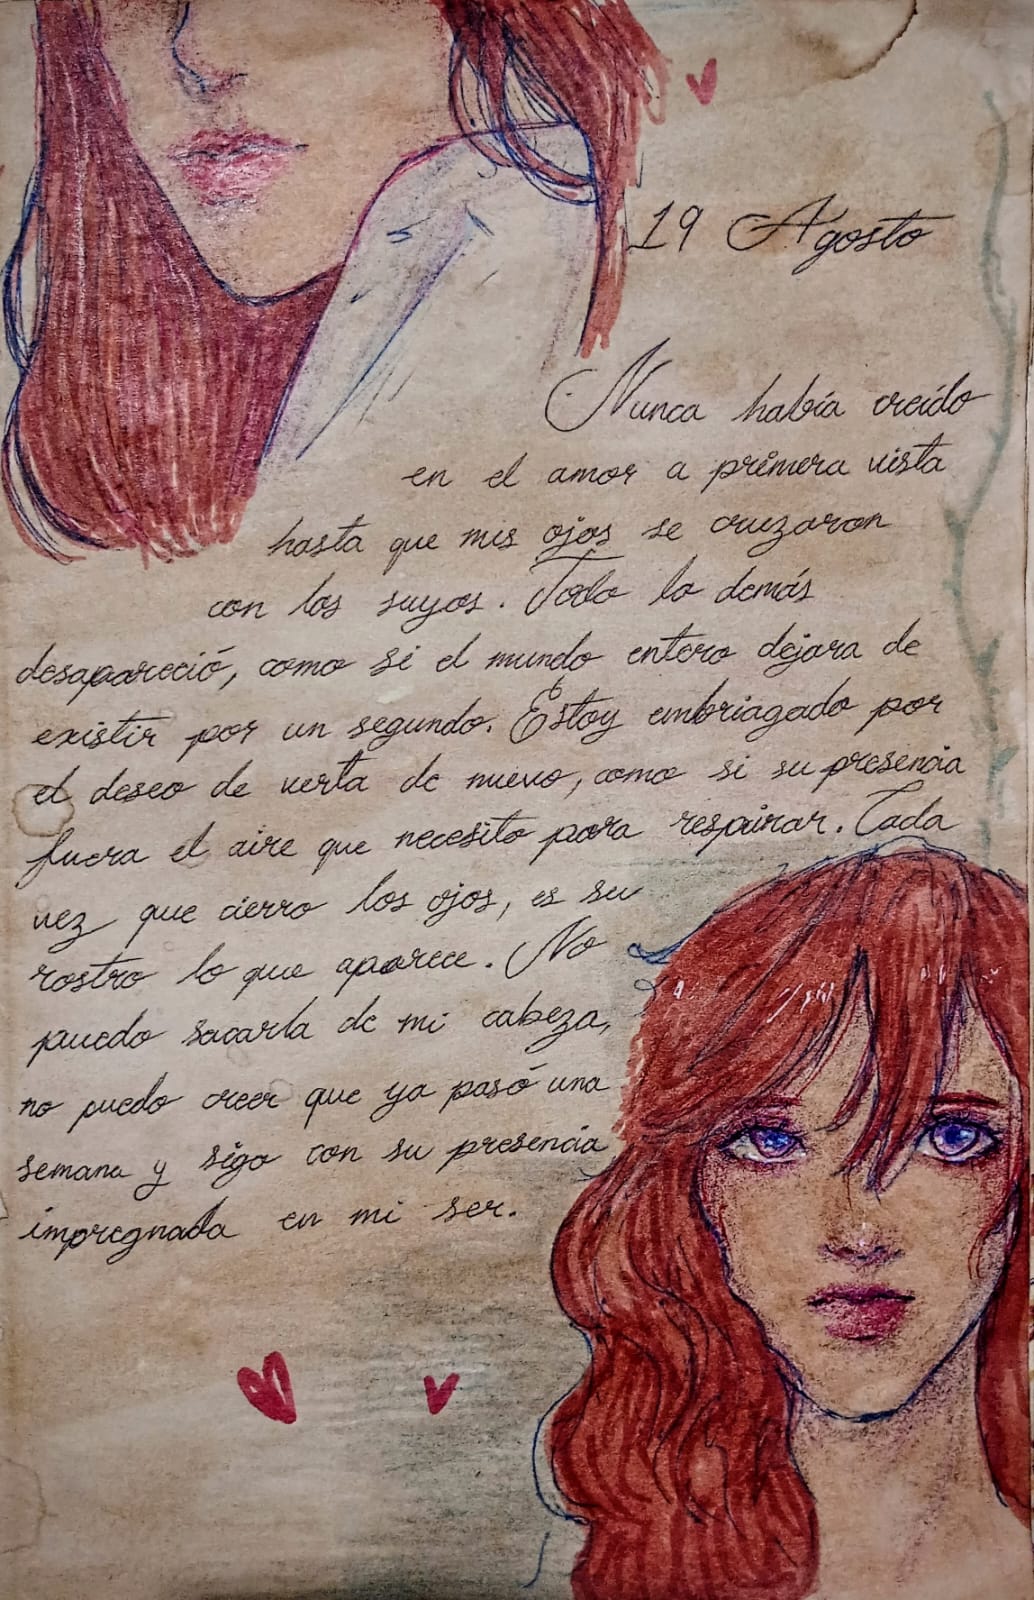 19 Agosto
Nunca había creído
en el amor a primera vista
hasta que mis ojos se cruzaron
con los suyos. Todo lo demás
desapareció, como si el mundo entero dejara de
existir por un segundo. Estoy embriagado por
el deseo de verla de nuevo, como si su presencia
fuera el aire que necesito para respirar. Cada
vez que cierro los ojos, es su
rostro lo que aparece. No
puedo sacarla de mi cabeza,
no puedo creer que ya pasó una
semana y sigo con su presencia
impregnada en mi ser.